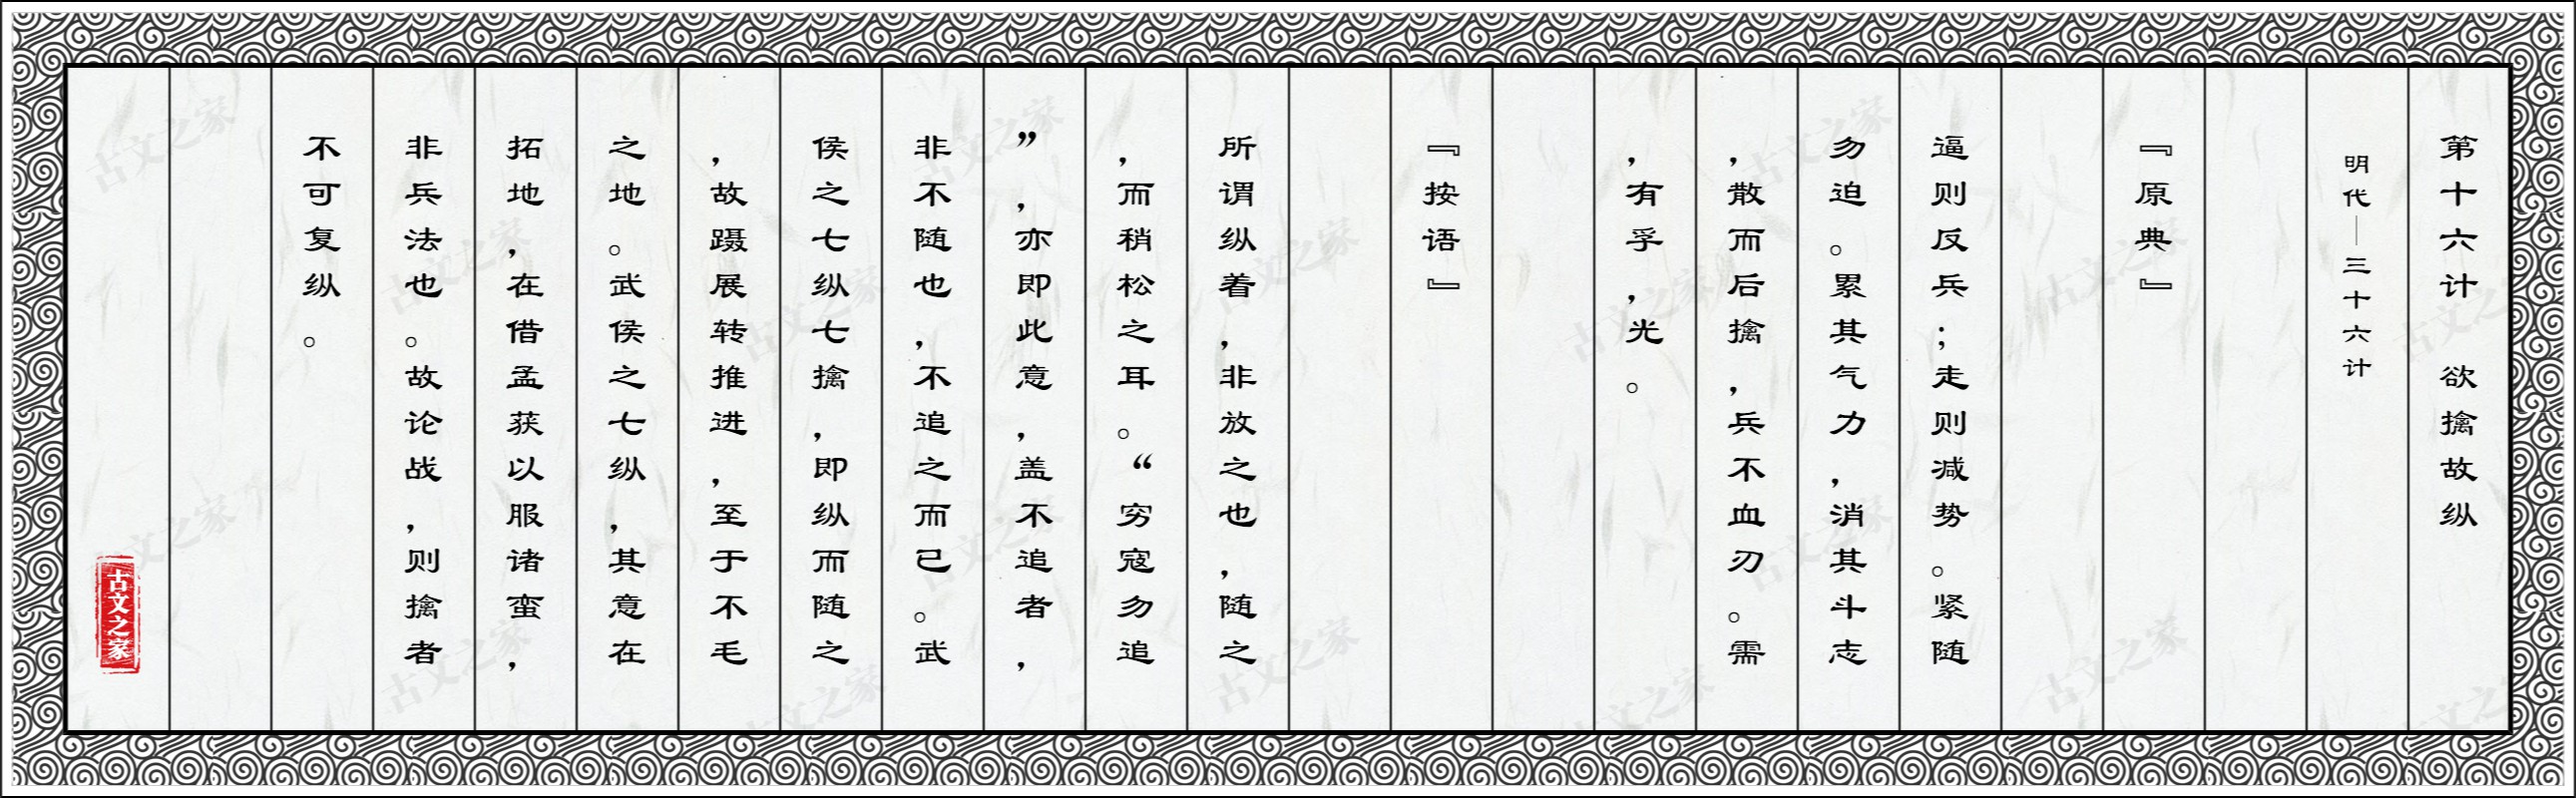 第十六计　欲擒故纵
明代｜三十六计
『原典』
逼则反兵；走则减势。紧随
勿迫。累其气力，消其斗志
，散而后擒，兵不血刃。需
，有孚，光。
『按语』
所谓纵着，非放之也，随之
，而稍松之耳。“穷寇勿追
”，亦即此意，盖不追者，
非不随也，不追之而已。武
侯之七纵七擒，即纵而随之
，故蹑展转推进，至于不毛
之地。武侯之七纵，其意在
拓地，在借孟获以服诸蛮，
非兵法也。故论战，则擒者
不可复纵。
古文之家